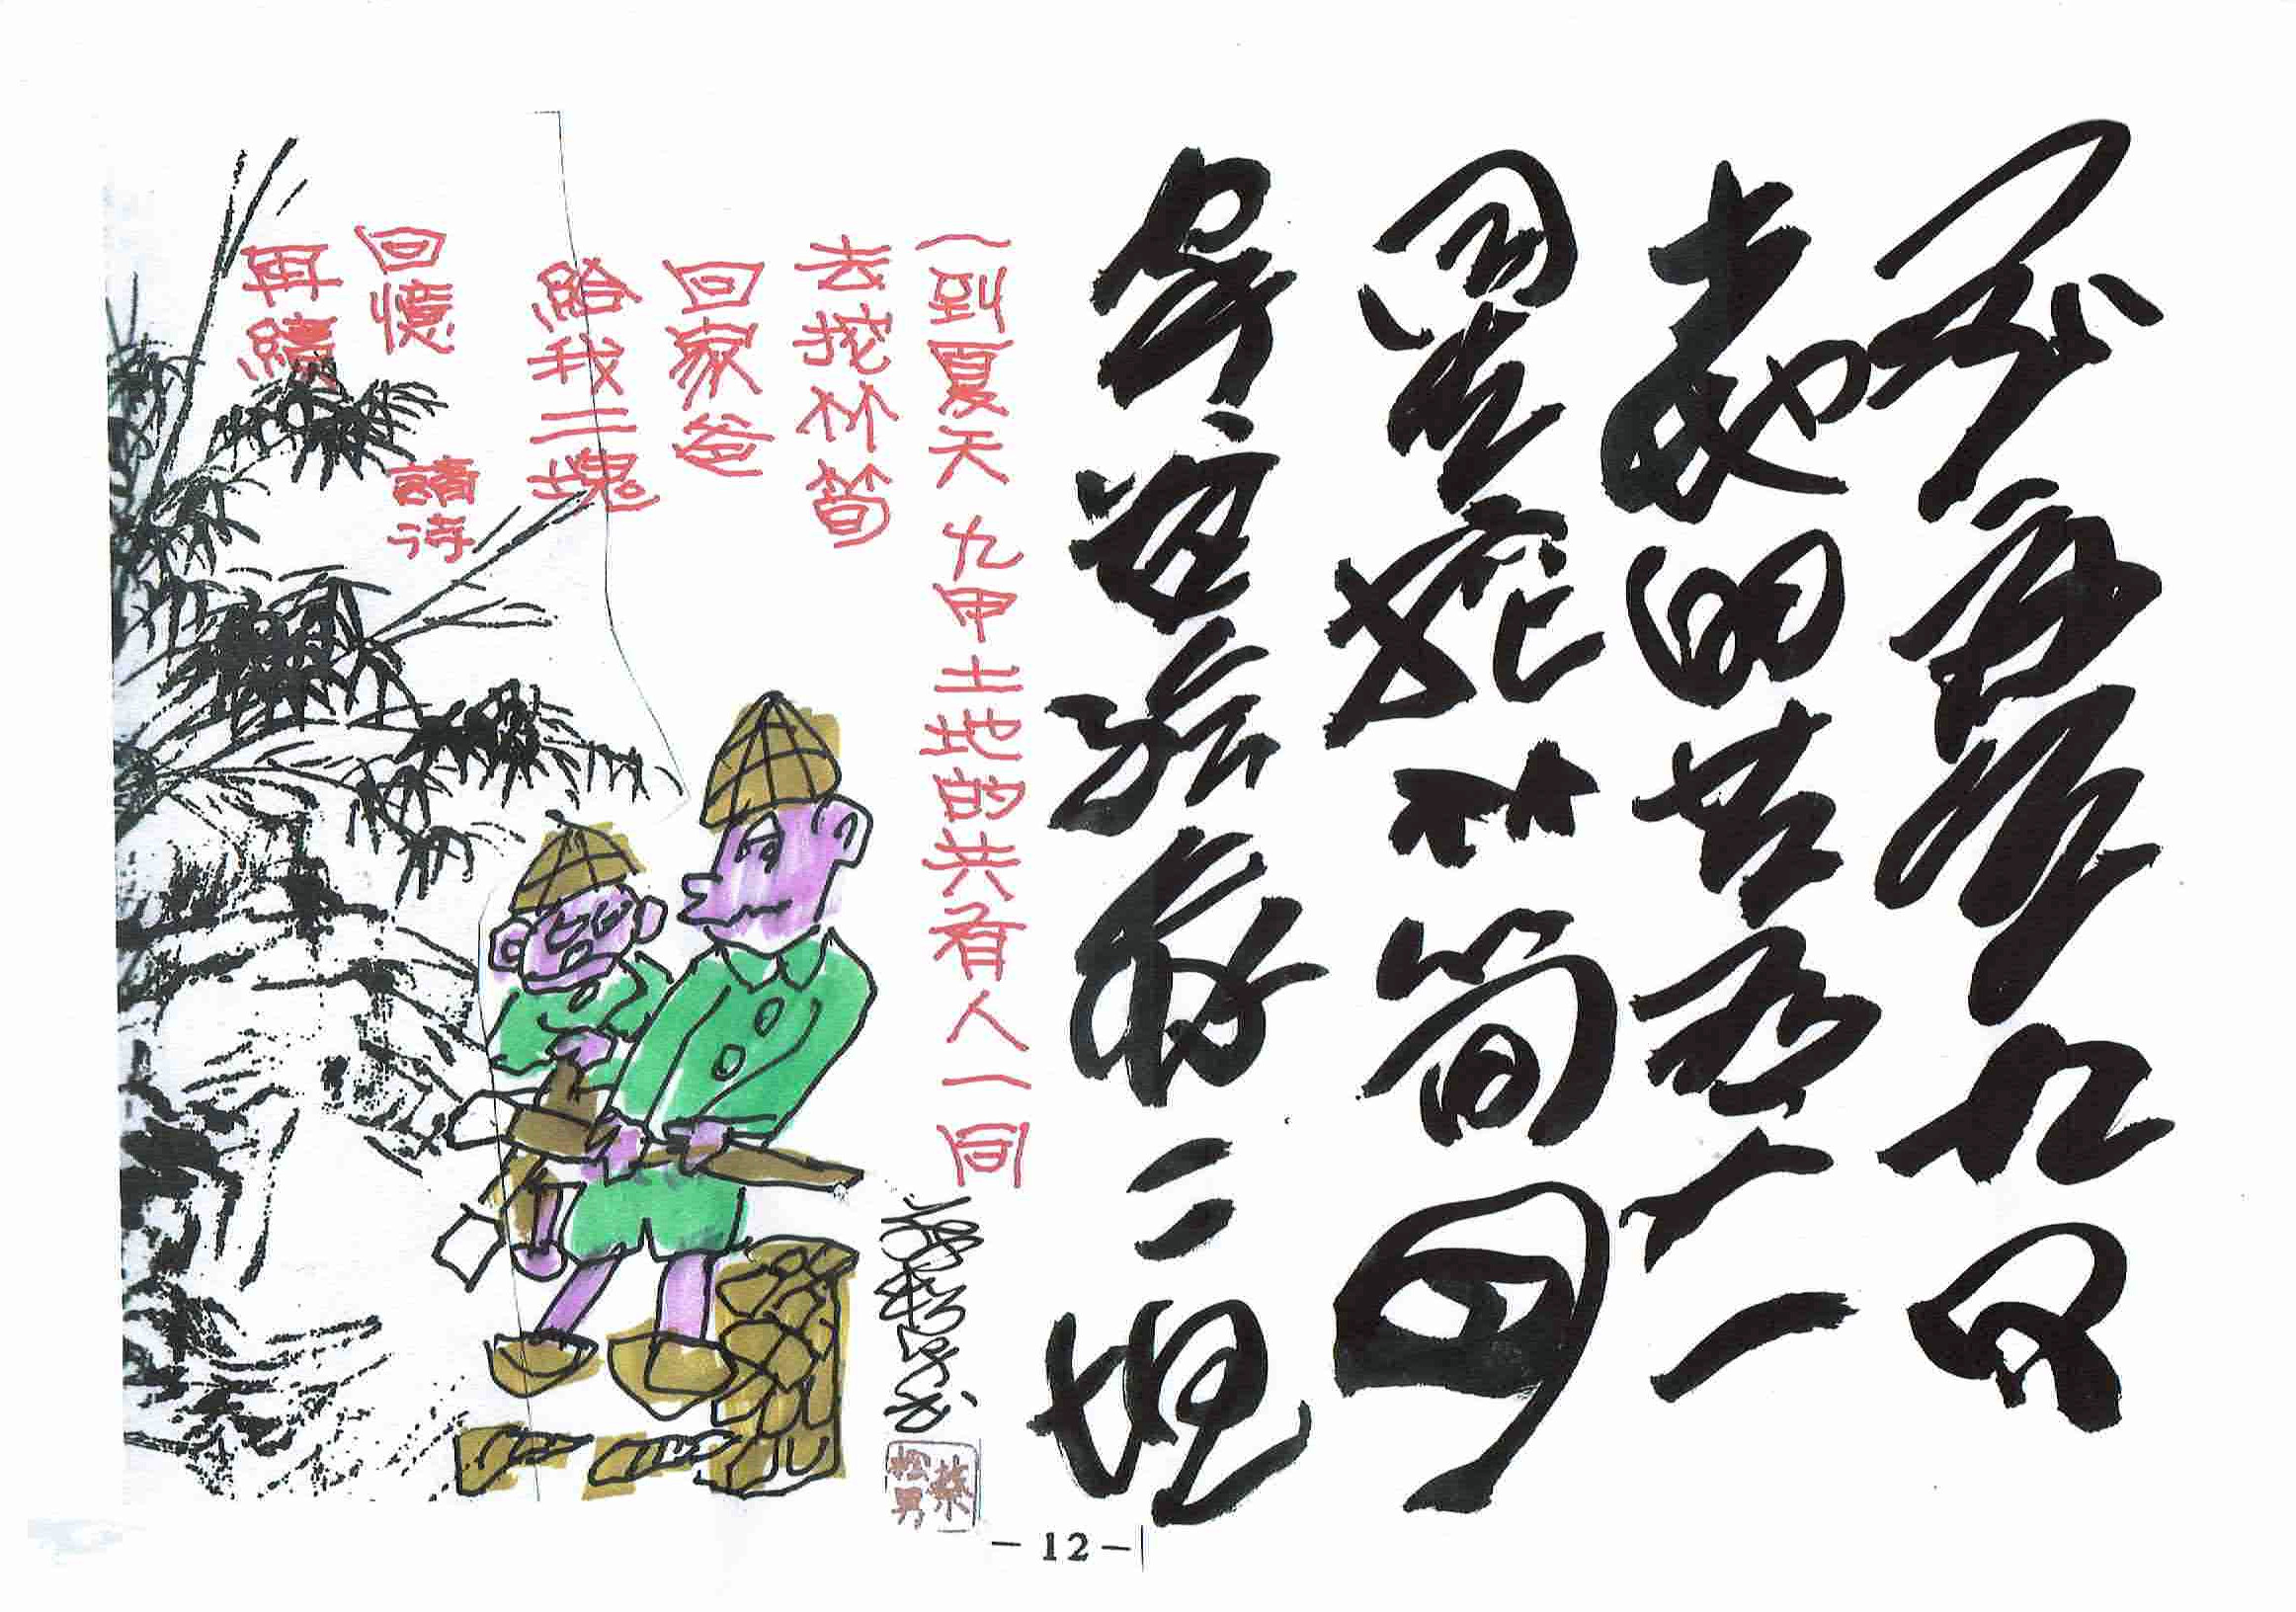 一到夏天九甲
土地的共有人一
同去挖竹筍回
家爸給我二塊
一到夏天 九甲土地的共有人一同
去挖竹筍
回家爸
給我二塊
回憶 請待
再續
蔡松男
- 12 -